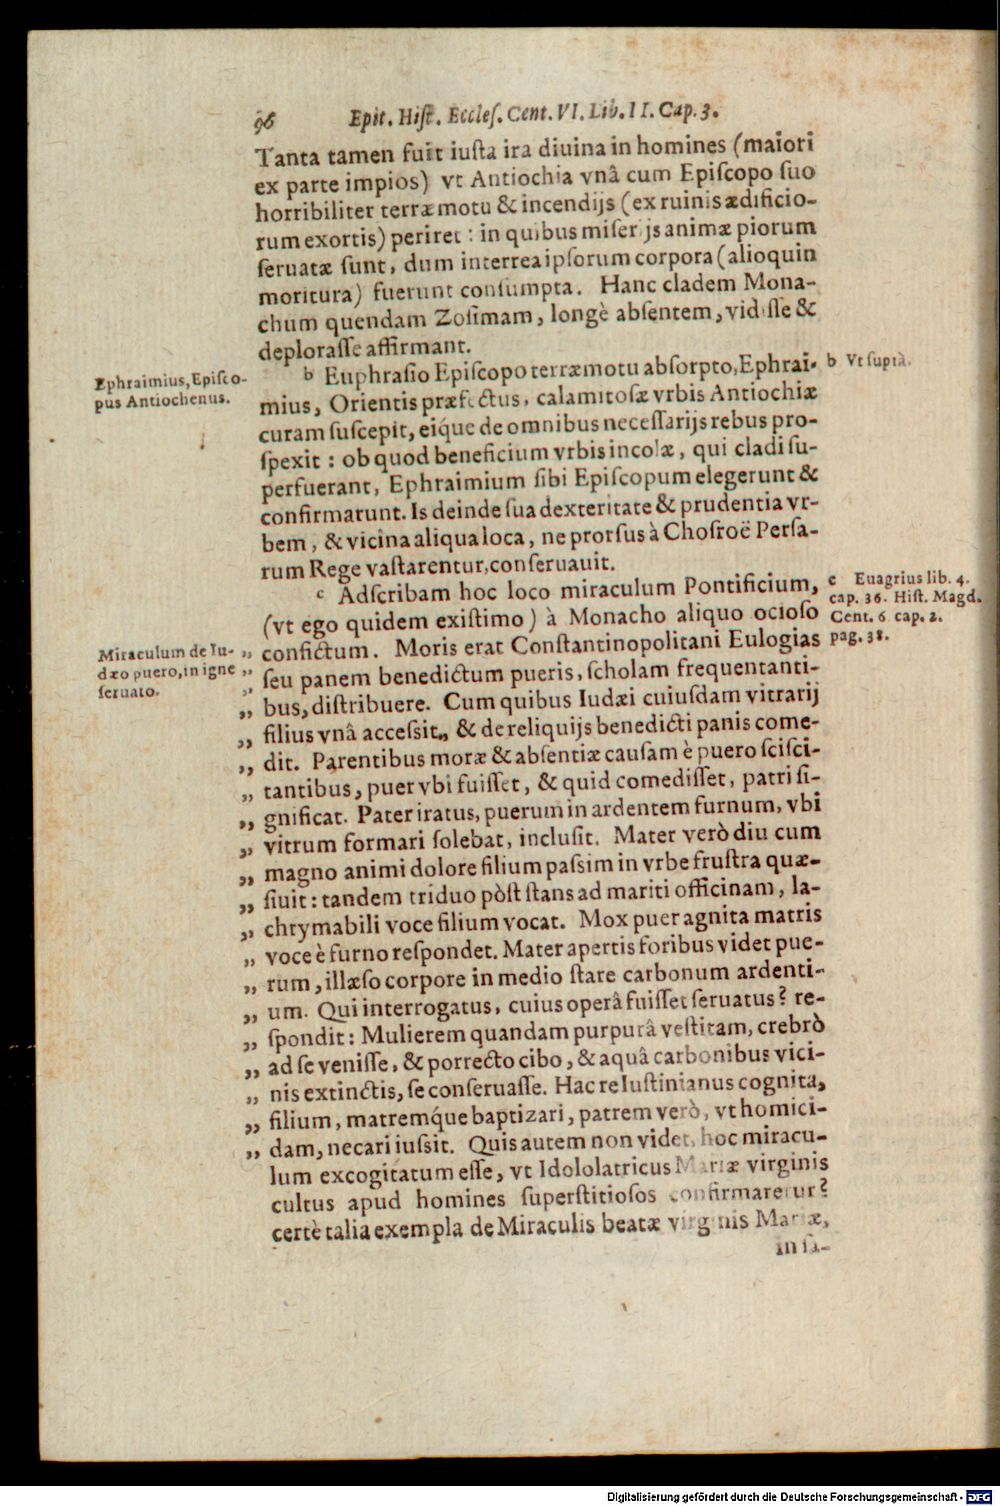 96 Epit. Hiſt. Eccleſ. Cent. VI. Lib. II. Cap. 3.
Tanta tamen fuit iuſta ira diuina in homines (maiori
ex parte impios) vt Antiochia vnâ cum Epiſcopo ſuo
horribiliter terræmotu & incendijs (ex ruinis ædificio-
rum exortis) periret : in quibus miſerijs animæ piorum
ſeruatæ ſunt, dum interrea ipſorum corpora (alioquin
moritura) fuerunt conſumpta. Hanc cladem Mona-
chum quendam Zoſimam, longè abſentem, vidiſſe &
deploraſſe affirmant.
Ephraimius, Epiſco-
pus Antiochenus.
b Euphraſio Epiſcopo terræmotu abſorpto, Ephrai-
b Vt ſuprà.
mius, Orientis præfectus, calamitoſæ vrbis Antiochiæ
curam ſuſcepit, eíque de omnibus neceſſarijs rebus pro-
ſpexit : ob quod beneficium vrbis incolæ, qui cladi ſu-
perfuerant, Ephraimium ſibi Epiſcopum elegerunt &
confirmarunt. Is deinde ſua dexteritate & prudentia vr-
bem, & vicina aliqua loca, ne prorſus à Choſroë Perſa-
rum Rege vaſtarentur, conſeruauit.
c Adſcribam hoc loco miraculum Pontificium,
(vt ego quidem exiſtimo) à Monacho aliquo ocioſo
c Euagrius lib. 4.
cap. 36. Hiſt. Magd.
Cent. 6 cap. 2.
pag. 38.
Miraculum de Iu-
dæo puero, in igne
ſeruato.
confictum. Moris erat Conſtantinopolitani Eulogias
„ ſeu panem benedictum pueris, ſcholam frequentanti-
„ bus, diſtribuere. Cum quibus Iudæi cuiuſdam vitrarij
„ filius vnâ acceſsit, & de reliquijs benedicti panis come-
„ dit. Parentibus moræ & abſentiæ cauſam è puero ſciſci-
„ tantibus, puer vbi fuiſſet, & quid comediſſet, patri ſi-
„ gnificat. Pater iratus, puerum in ardentem furnum, vbi
„ vitrum formari ſolebat, incluſit. Mater verò diu cum
„ magno animi dolore filium paſsim in vrbe fruſtra quæ-
„ ſiuit : tandem triduo pòſt ſtans ad mariti officinam, la-
„ chrymabili voce filium vocat. Mox puer agnita matris
„ voce è furno reſpondet. Mater apertis foribus videt pue-
„ rum, illæſo corpore in medio ſtare carbonum ardenti-
„ um. Qui interrogatus, cuius operâ fuiſſet ſeruatus? re-
„ ſpondit : Mulierem quandam purpurâ veſtitam, crebrò
„ ad ſe veniſſe, & porrecto cibo, & aquâ carbonibus vici-
„ nis extinctis, ſe conſeruaſſe. Hac re Iuſtinianus cognita,
„ filium, matremq́ue baptizari, patrem verò, vt homici-
„ dam, necari iuſsit. Quis autem non videt, hoc miracu-
lum excogitatum eſſe, vt Idololatricus Mariæ virginis
cultus apud homines ſuperſtitioſos confirmaretur?
certè talia exempla de Miraculis beatæ virginis Mariæ,
in ſa-
Digitalisierung gefördert durch die Deutsche Forschungsgemeinschaft - DFG